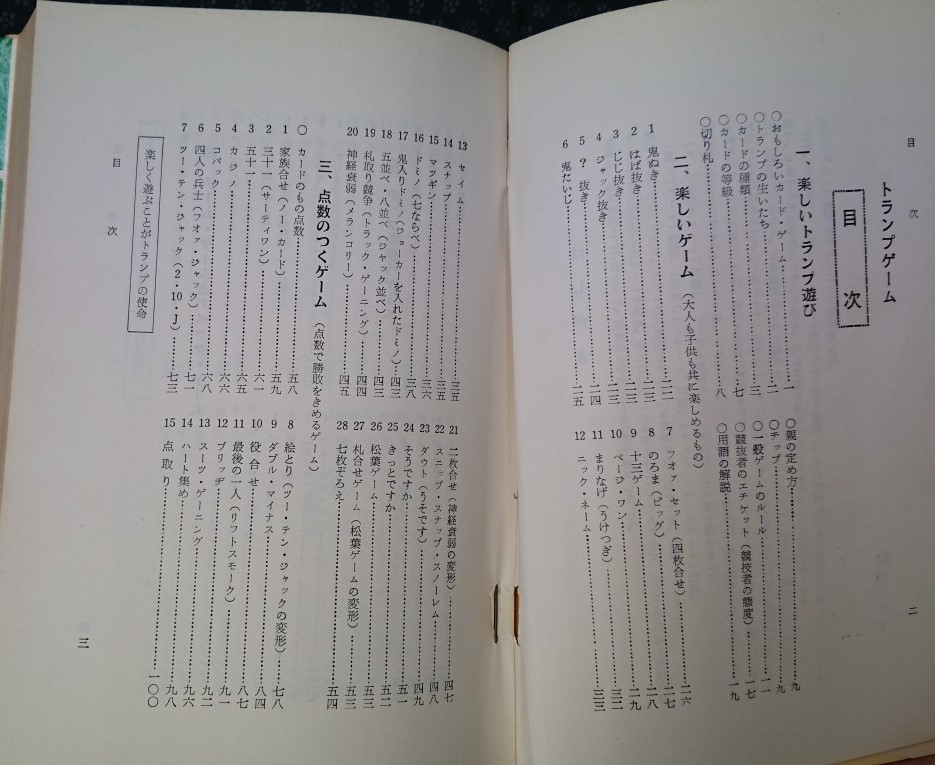 目次
トランプゲーム
目次
一、楽しいトランプ遊び
○おもしろいカード・ゲーム……一
○トランプの生いたち……三
○カードの種類……五
○カードの等級……七
○切り札……八
○親の定め方……九
○チップ……九
○一般ゲームのルール……一一
○競技者のエチケット(競技者の態度)……一七
○用語の解説……一九
二、楽しいゲーム(大人も子供も共に楽しめるもの)
1 鬼ぬき……二二
2 ばば抜き……二三
3 じじ抜き……二三
4 ジャック抜き……
5 ?抜き……二四
6 鬼たいじ……二五
7 フオァ・セット(四枚合せ)……二六
8 のろま(ピッグ)……二七
9 十三ゲーム……二八
10 ページ・ワン……二九
11 まりなげ(うけつぎ)……三二
12 ニック・ネーム……三三
13 セイム……三五
14 スナップ……三五
15 マツギン……三六
16 ドミノ(七ならべ)……三八
17 鬼入りドミノ(ジョーカーを入れたドミノ)……四三
18 五並べ・八並べ(ジャック並べ)……四三
19 札取り競争(トラック・ゲーニング)……四四
20 神経衰弱(メランコリー)……四五
21 二枚合せ(神経衰弱の変形)……四七
22 スニップ・スナップ・スノーレム……四八
23 ダウト(うそです)……四九
24 そうですか……五一
25 きっとですか……五二
26 松葉ゲーム……五三
27 札合せゲーム(松葉ゲームの変形)……五三
28 七枚ぞろえ……五四
三、点数のつくゲーム(点数で勝敗をきめるゲーム)
○ カードのもつ点数……五八
1 家族合せ(ノー・カード)……五九
2 三十一(サーティワン)……六一
3 五十一……六五
4 カジノ……六六
5 コバック……六八
6 四人の兵士(フオァ・ジャック)……七一
7 ツー・テン・ジャック(2・10・J)……七三
8 絵とり(ツー・テン・ジャックの変形)……七八
9 ダブル・マイナス……八四
10 役合せ……八七
11 最後の一人(リフトスモーク)……九一
12 ブリッヂ……九二
13 スーツ・ゲーニング……九六
14 ハート集め……九八
15 点取り……一〇〇
楽しく遊ぶことがトランプの使命
目次
二
三